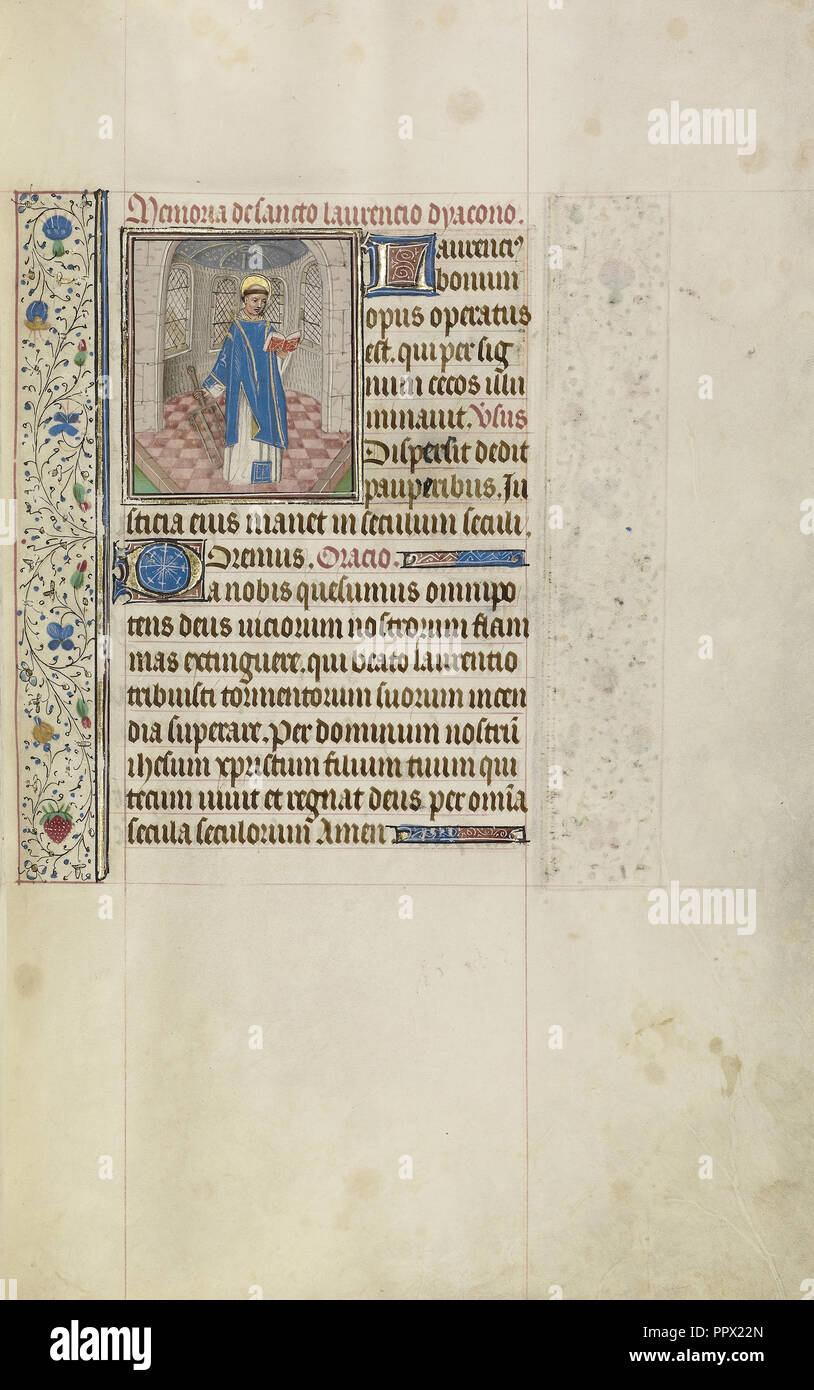 Memoria de sancto laurencio dyacono.
Laurenciꝰ
bonum
opus operatus
est. qui per sig
num cecos illu
minauit. Vsus
Dispersit dedit
pauperibus. Iu
sticia eius manet in seculum seculi.
Oremus. Oracio.
Da nobis quesumus omnipo
tens deus uiciorum nostrorum flam
mas extinguere. qui beato laurentio
tribuisti tormentorum suorum incen
dia superare. Per dominum nostrū
ihesum xpristum filium tuum qui
tecum uiuit et regnat deus per om̄ia
secula seculorum Amen
alamy
a
alamy stock photo
PPX22N
www.alamy.com